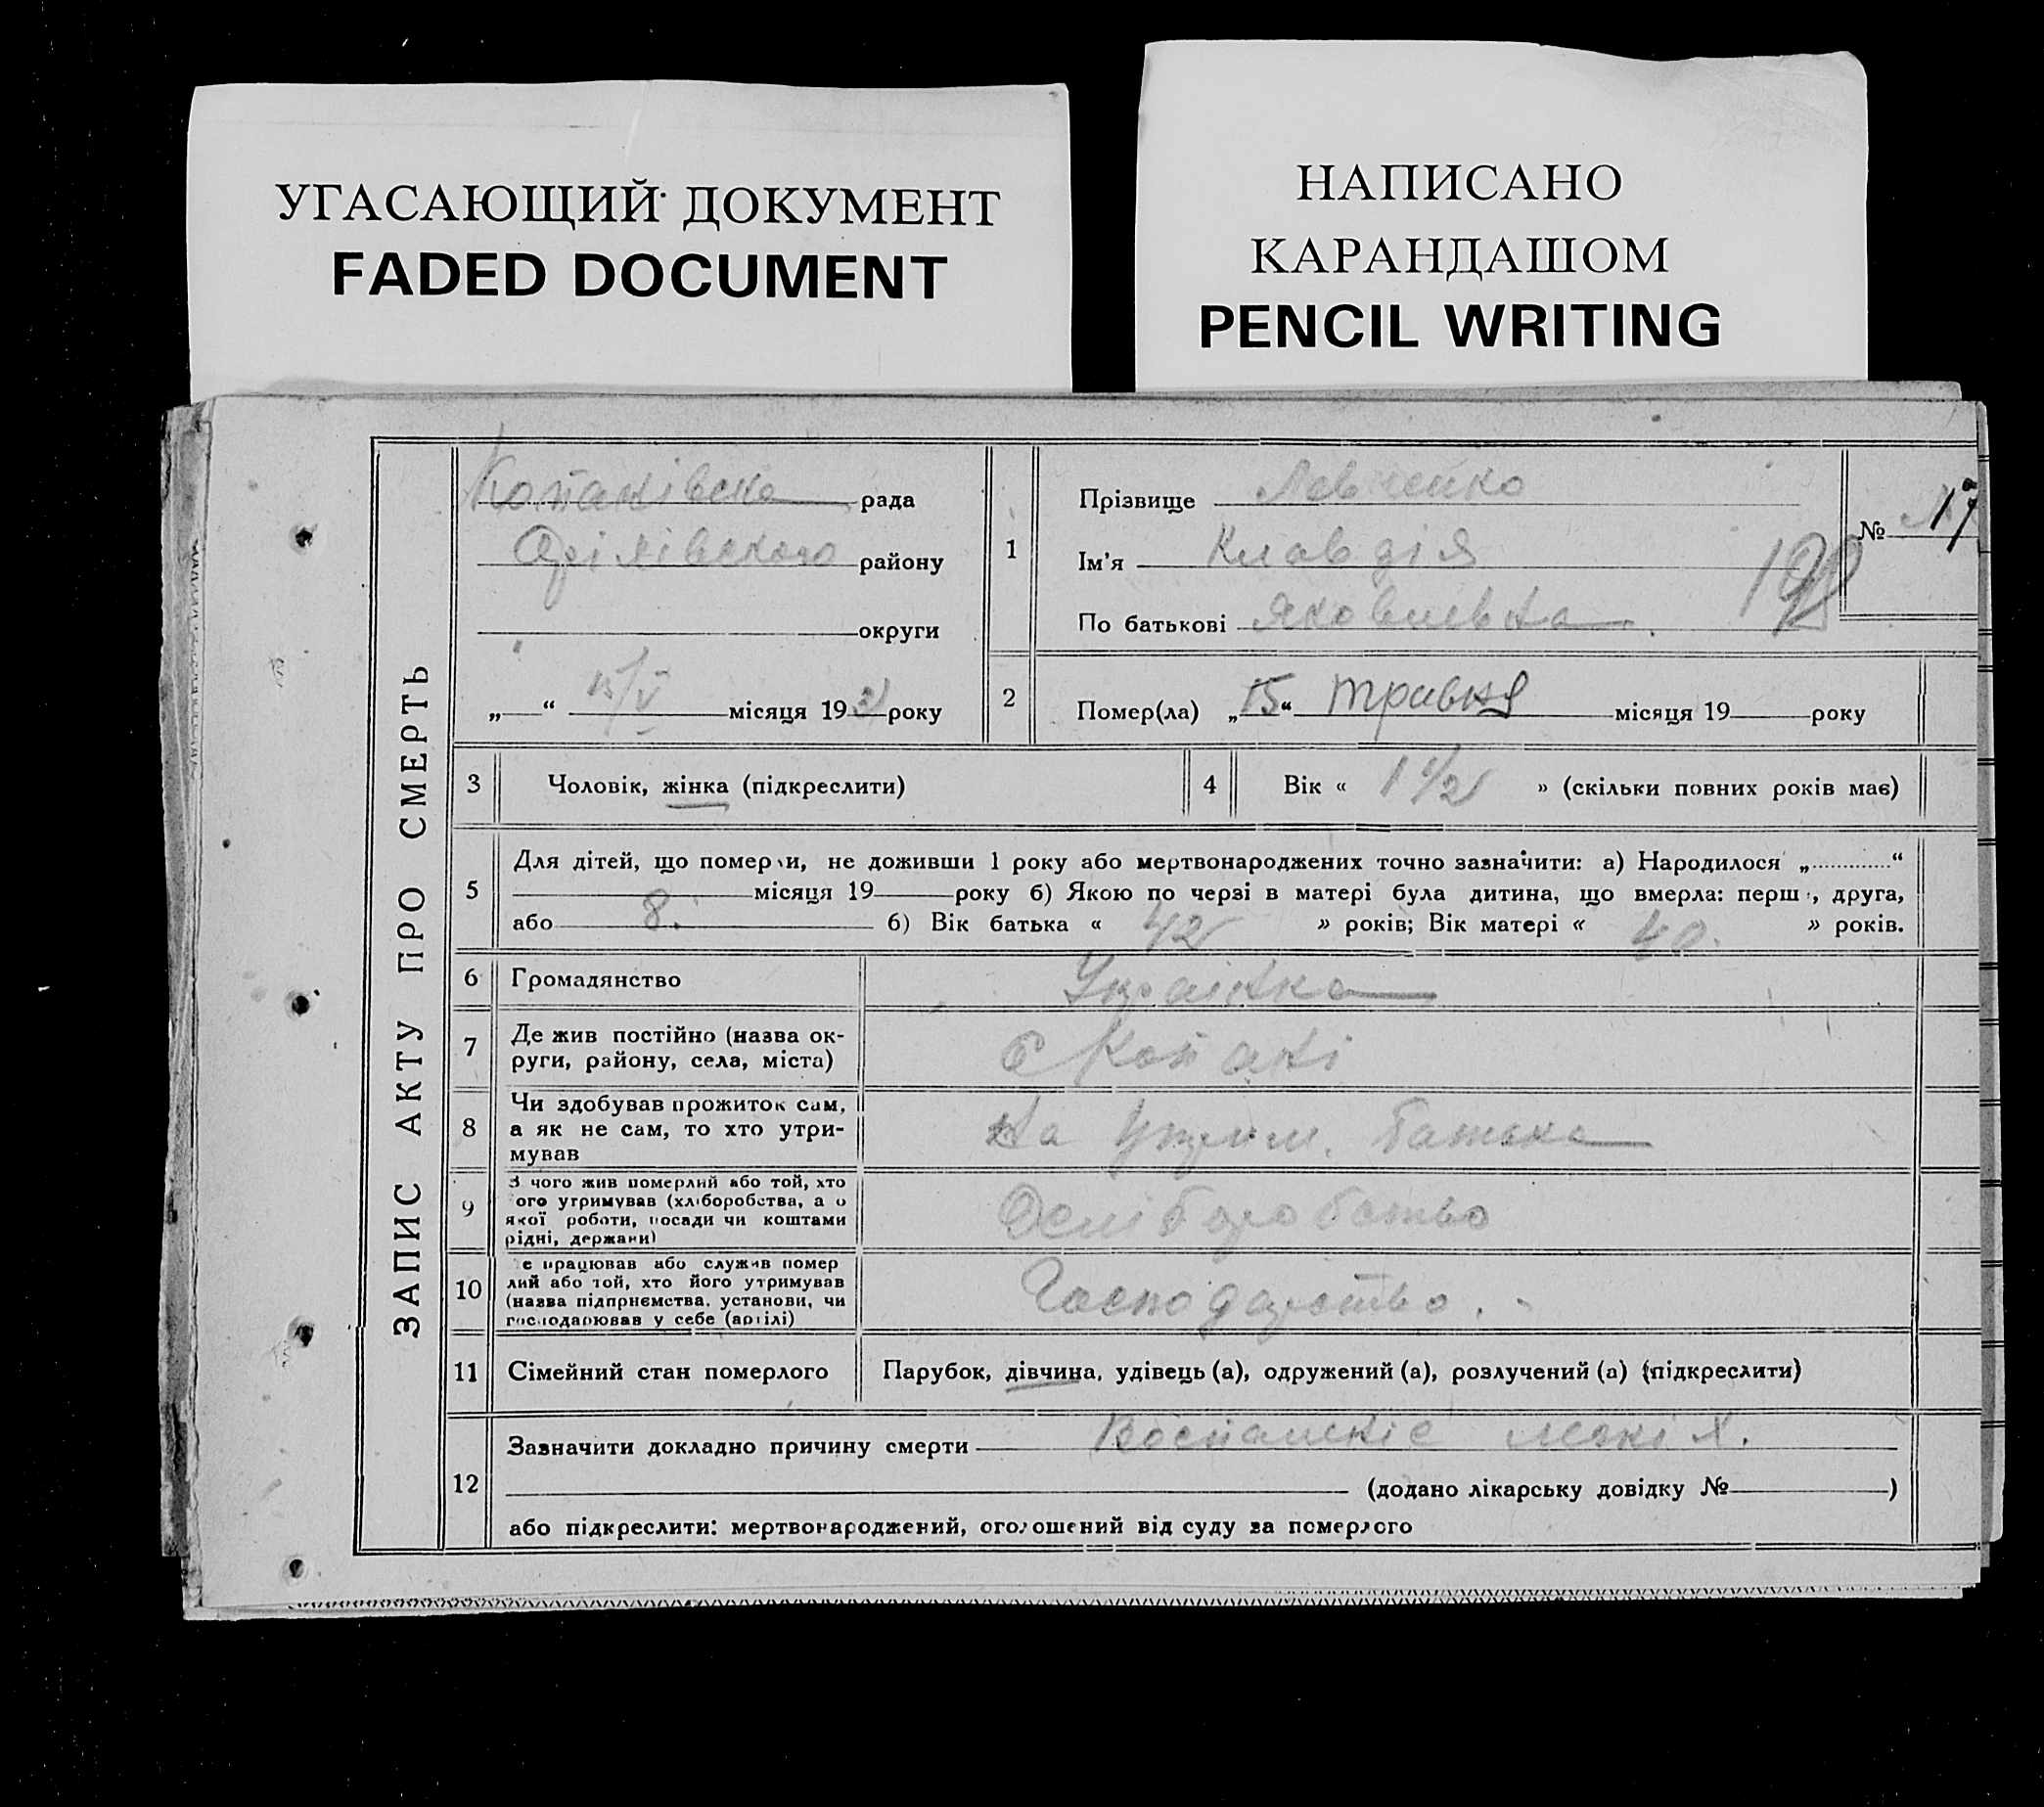 УГАСАЮЩИЙ ДОКУМЕНТ
FADED DOCUMENT
НАПИСАНО
КАРАНДАШОМ
PENCIL WRITING
ЗАПИС АКТУ ПРО СМЕРТЬ
Копаківська рада
Орілівського району
округи
„ “ 15/V місяця 19 року
1
Прізвище Левченко
Ім'я Клавдія
По батькові Яковлевна
№ 17
198
2
Помер(ла) „15“ травня місяця 19 року
3
Чоловік, жінка (підкреслити)
4
Вік « 1 1/2 » (скільки повних років має)
5
Для дітей, що померли, не доживши 1 року або мертвонароджених точно зазначити: а) Народилося „ “
місяця 19 року б) Якою по черзі в матері була дитина, що вмерла: перша, друга,
або 8. б) Вік батька « 42 » років; Вік матері « 40. » років.
6
Громадянство
Українка
7
Де жив постійно (назва ок-
руги, району, села, міста)
с Копакі
8
Чи здобував прожиток сам,
а як не сам, то хто утри-
мував
на Утрим. батька
9
З чого жив померлий або той, хто
ого утримував (хліборобства, а о
якої роботи, посади чи коштами
рідні, держави)
Хліборобство
10
е працював або служив помер
лий або той, хто його утримував
(назва підприємства, установи, чи
господарював у себе (артілі)
Господарство.
11
Сімейний стан померлого
Парубок, дівчина, удівець (а), одружений (а), розлучений (а) (підкреслити)
12
Зазначити докладно причину смерти Воспаленіе
(додано лікарську довідку № )
або підкреслити: мертвонароджений, оголошений від суду за померлого